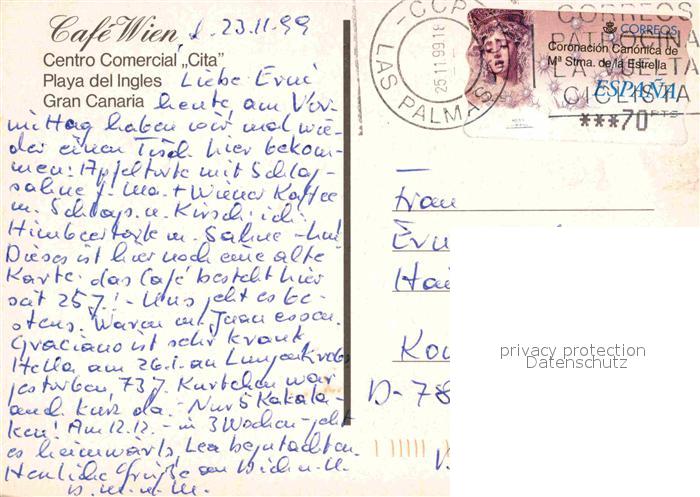 Café Wien, d. 23.11.99
Centro Comercial „Cita"
Playa del Ingles
Gran Canaria
Liebe Erni
heute am Vor-
mittag haben wir mal wie-
der einen Tisch hier bekom-
men: Apfeltorte mit Schlag-
sahne f. Ma. + Wiener Kaffee
m. Schlags. u. Kirsch; ich:
Himbeertorte m. Sahne - hm!
Dieses ist hier noch eine alte
Karte: das Café besteht hier
seit 25 J.! - Uns geht es be-
stens. Waren m. Juan essen.
Graciano ist sehr krank
Hella am 26.1. an Lungenkrebs
gestorben, 73 J. Kurtchen war
auch kurz da. Nur 5 Kakala-
ken! Am 12.12. - in 3 Wochen - geht
es heimwärts, Lea begutachten.
Herzliche Grüße an Dich u. U.
v. M. u. M.
CCP
LAS PALMAS
25.11.99.18
CORREOS
PATROCINA
LA VUELTA
CICLISTA
CORREOS
Coronación Canónica de
Mª Stma. de la Estrella
ESPAÑA
***70 PTS
Frau
Ern
Hai
Kon
D-78
privacy protection
Datenschutz